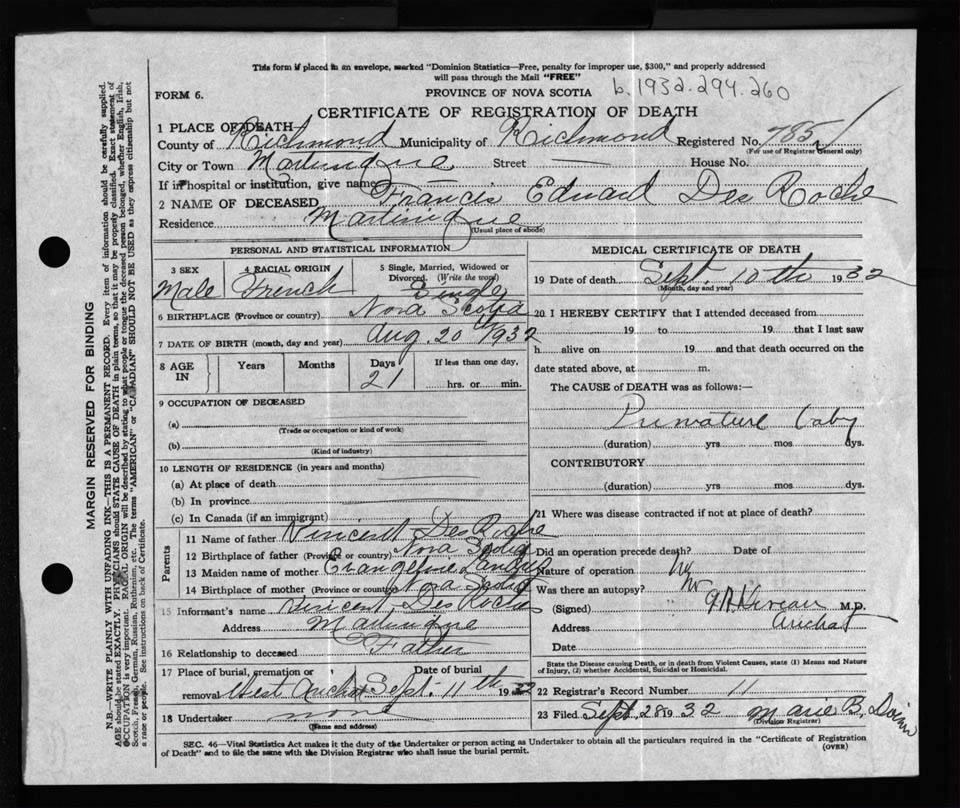 This form if placed in an envelope, marked "Dominion Statistics—Free, penalty for improper use, $300," and properly addressed
will pass through the Mail "FREE"
FORM 6.
PROVINCE OF NOVA SCOTIA
b.1932.294.260
CERTIFICATE OF REGISTRATION OF DEATH
1 PLACE OF DEATH
County of Richmond Municipality of Richmond Registered No. 785
(For use of Registrar General only)
City or Town Martinique Street — House No.
If in hospital or institution, give name —
2 NAME OF DECEASED Francis Edward Des Roche
Residence Martinique
(Usual place of abode)
PERSONAL AND STATISTICAL INFORMATION
3 SEX Male
4 RACIAL ORIGIN French
5 Single, Married, Widowed or Divorced. (Write the word) Single
6 BIRTHPLACE (Province or country) Nova Scotia
7 DATE OF BIRTH (month, day and year) Aug. 20th 1932
8 AGE IN Years Months Days 21 If less than one day, hrs. or min.
9 OCCUPATION OF DECEASED
(a)
(Trade or occupation or kind of work)
(b)
(Kind of industry)
10 LENGTH OF RESIDENCE (in years and months)
(a) At place of death
(b) In province
(c) In Canada (if an immigrant)
Parents
11 Name of father Vincent Des Roche
12 Birthplace of father (Province or country) Nova Scotia
13 Maiden name of mother Evangeline Landry
14 Birthplace of mother (Province or country) Nova Scotia
15 Informant's name Vincent Des Roche
Address Martinique
16 Relationship to deceased Father
17 Place of burial, cremation or removal West Arichat Date of burial Sept. 11th 1932
18 Undertaker none
(Name and address)
MEDICAL CERTIFICATE OF DEATH
19 Date of death Sept. 10th 1932
(Month, day and year)
20 I HEREBY CERTIFY that I attended deceased from
19 to 19 that I last saw
h alive on 19 and that death occurred on the
date stated above, at m.
The CAUSE OF DEATH was as follows:—
Premature baby
(duration) yrs. mos. dys.
CONTRIBUTORY
(duration) yrs. mos. dys.
21 Where was disease contracted if not at place of death?
Did an operation precede death? Date of
Nature of operation no
Was there an autopsy? no
(Signed) M.D.
Address Arichat
Date
State the Disease causing Death, or in death from Violent Causes, state (1) Means and Nature
of Injury, (2) whether Accidental, Suicidal or Homicidal.
22 Registrar's Record Number 11
23 Filed Sept 28 1932 Marie B.
(Division Registrar)
SEC. 46—Vital Statistics Act makes it the duty of the Undertaker or person acting as Undertaker to obtain all the particulars required in the "Certificate of Registration
of Death" and to file the same with the Division Registrar who shall issue the burial permit.
(OVER)
MARGIN RESERVED FOR BINDING
N.B.—WRITE PLAINLY WITH UNFADING INK—THIS IS A PERMANENT RECORD. Every item of information should be carefully supplied.
AGE should be stated EXACTLY. PHYSICIANS should STATE CAUSE OF DEATH in plain terms, so that it may be properly classified. Exact statement of
OCCUPATION is very important. RACIAL ORIGIN will be described by stating to what people or tongue the deceased person belonged, whether English, Irish,
Scotch, French, German, Russian, Ruthenian, etc. The terms "AMERICAN" or "CANADIAN" SHOULD NOT BE USED as they express citizenship but not
a race or people. See instructions on back of Certificate.